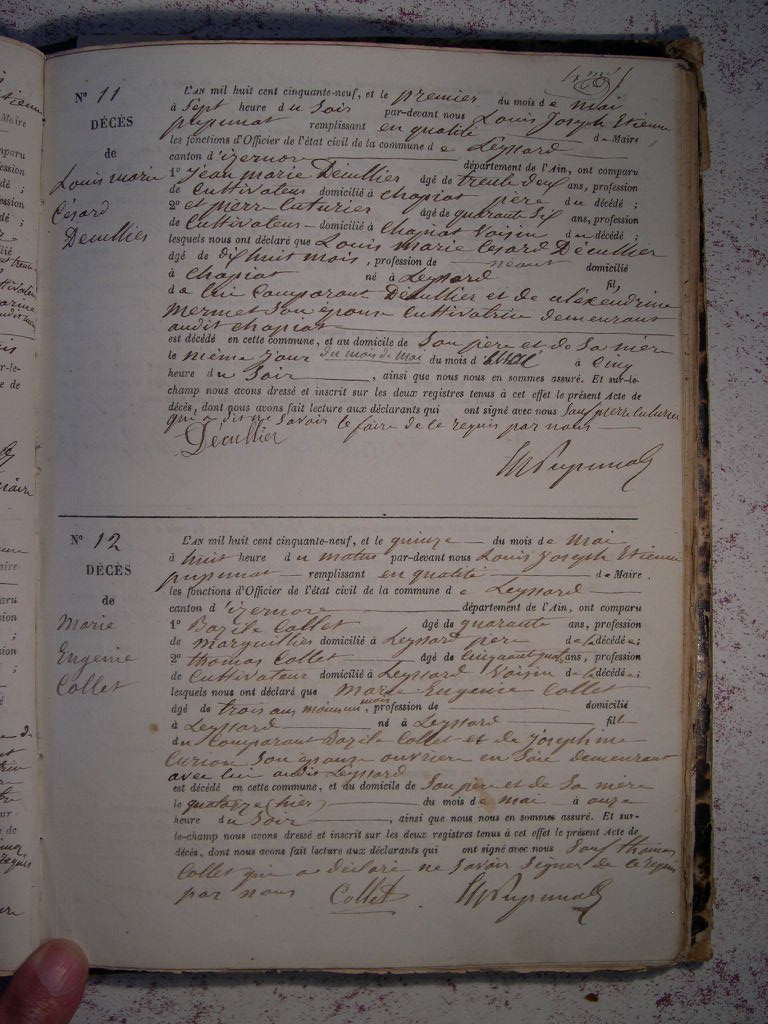 N° 11
DÉCÈS
de
Louis marie
Césard
Décullier
L'AN mil huit cent cinquante-neuf, et le premier du mois de Mai
à Sept heure du Soir par-devant nous Louis Joseph Etienne
pupunat remplissant en qualité de Maire
les fonctions d'Officier de l'état civil de la commune de Leyssard
canton d'izernore département de l'Ain, ont comparu
1° Jean marie Décullier âgé de trente deux ans, profession
de Cultivateur domicilié à chapiat père du décédé ;
2° et pierre Caturier âgé de quarante Six ans, profession
de Cultivateur domicilié à Chapiat Voisin du décédé ;
lesquels nous ont déclaré que Louis Marie Césard Décullier
âgé de dix huit mois, profession de néant domicilié
à Chapiat né à Leyssard fils
du dit Comparant Décullier et de aléxendrine
mermet Son épouse Cultivatrice demeurant
audit chapiat
est décédé en cette commune, et au domicile de Son père et de Sa mère
le même Jour du mois de Mai du mois d à Cinq
heure du Soir , ainsi que nous nous en sommes assuré. Et sur-le-
champ nous avons dressé et inscrit sur les deux registres tenus à cet effet le présent Acte de
décès, dont nous avons fait lecture aux déclarants qui ont signé avec nous Sauf pierre Caturier
qui a dit ne Savoir le faire de ce requis par nous
Décullier
Pupunat
N° 12
DÉCÈS
de
Marie
Eugenie
Collet
L'AN mil huit cent cinquante-neuf, et le quinze du mois de Mai
à huit heure du matin par-devant nous Louis Joseph Etienne
pupunat remplissant en qualité de Maire
les fonctions d'Officier de l'état civil de la commune de Leyssard
canton d'izernore département de l'Ain, ont comparu
1° Bazile Collet âgé de quarante ans, profession
de Marguillier domicilié à Leyssard père de la décédée ;
2° thomas Collet âgé de ans, profession
de Cultivateur domicilié à Leyssard Voisin de la décédée ;
lesquels nous ont déclaré que Marie Eugenie Collet
âgé de trois ans moins un mois, profession de domicilié
à Leyssard né à Leyssard fille
du Comparant Bazile Collet et de Joséphine
Curion Son épouse ouvrière en Soie demeurant
avec lui audit Leyssard
est décédé en cette commune, et au domicile de Son père et de Sa mère
le quatorze (hier) du mois de Mai à onze
heure du Soir , ainsi que nous nous en sommes assuré. Et sur-
le-champ nous avons dressé et inscrit sur les deux registres tenus à cet effet le présent Acte de
décès, dont nous avons fait lecture aux déclarants qui ont signé avec nous Sauf thomas
Collet qui a déclaré ne Savoir Signer de ce requis
par nous Collet Pupunat